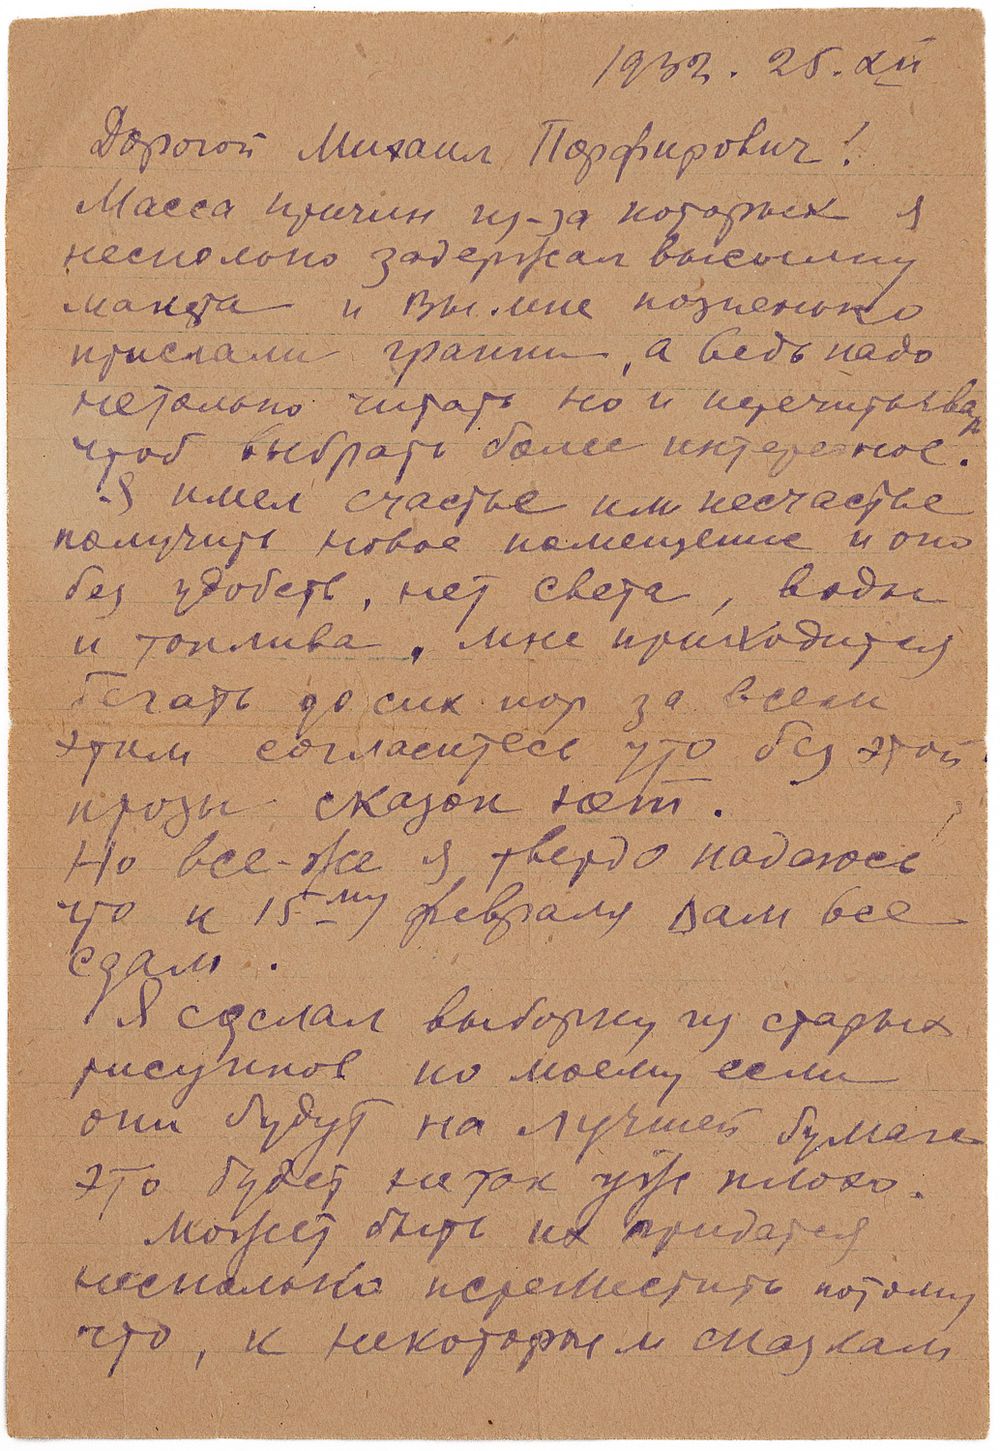 1932. 25. XII
Дорогой Михаил Порфирович!
Масса причин из-за которых я
несколько задержал высылку
макета и Вы мне позненько
прислали гранки, а ведь надо
нетолько читать но и перечитывать
чтоб выбрать более интересное.
Я имел счастье или несчастье
получить новое помещение и оно
без удобств, нет света, воды
и топлива, мне приходится
бегать до сих пор за всем
этим согласитесь что без этой
прозы сказок нет.
Но все-же я твердо надеюсь
что к 15-му февраля Вам все
сдам.
Я сделал выборку из старых
рисунков по моему если
они будут на лучшей бумаге
это будет не так уж плохо.
Может быть их придется
несколько переместить потому
что, к некоторым сказкам